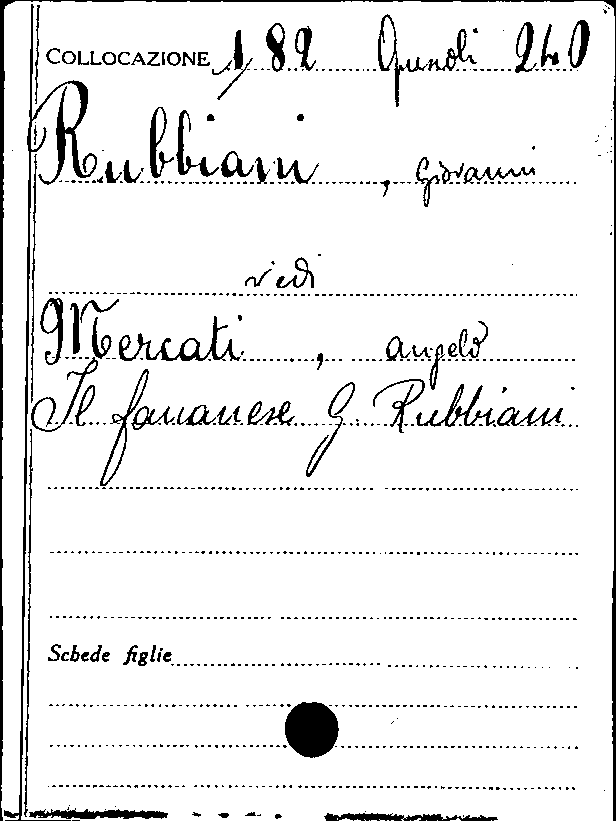 COLLOCAZIONE 1/82 Opuscoli 240
Rubbiani, Giovanni
vedi
Mercati, Angelo
Il fananese G. Rubbiani
Schede figlie